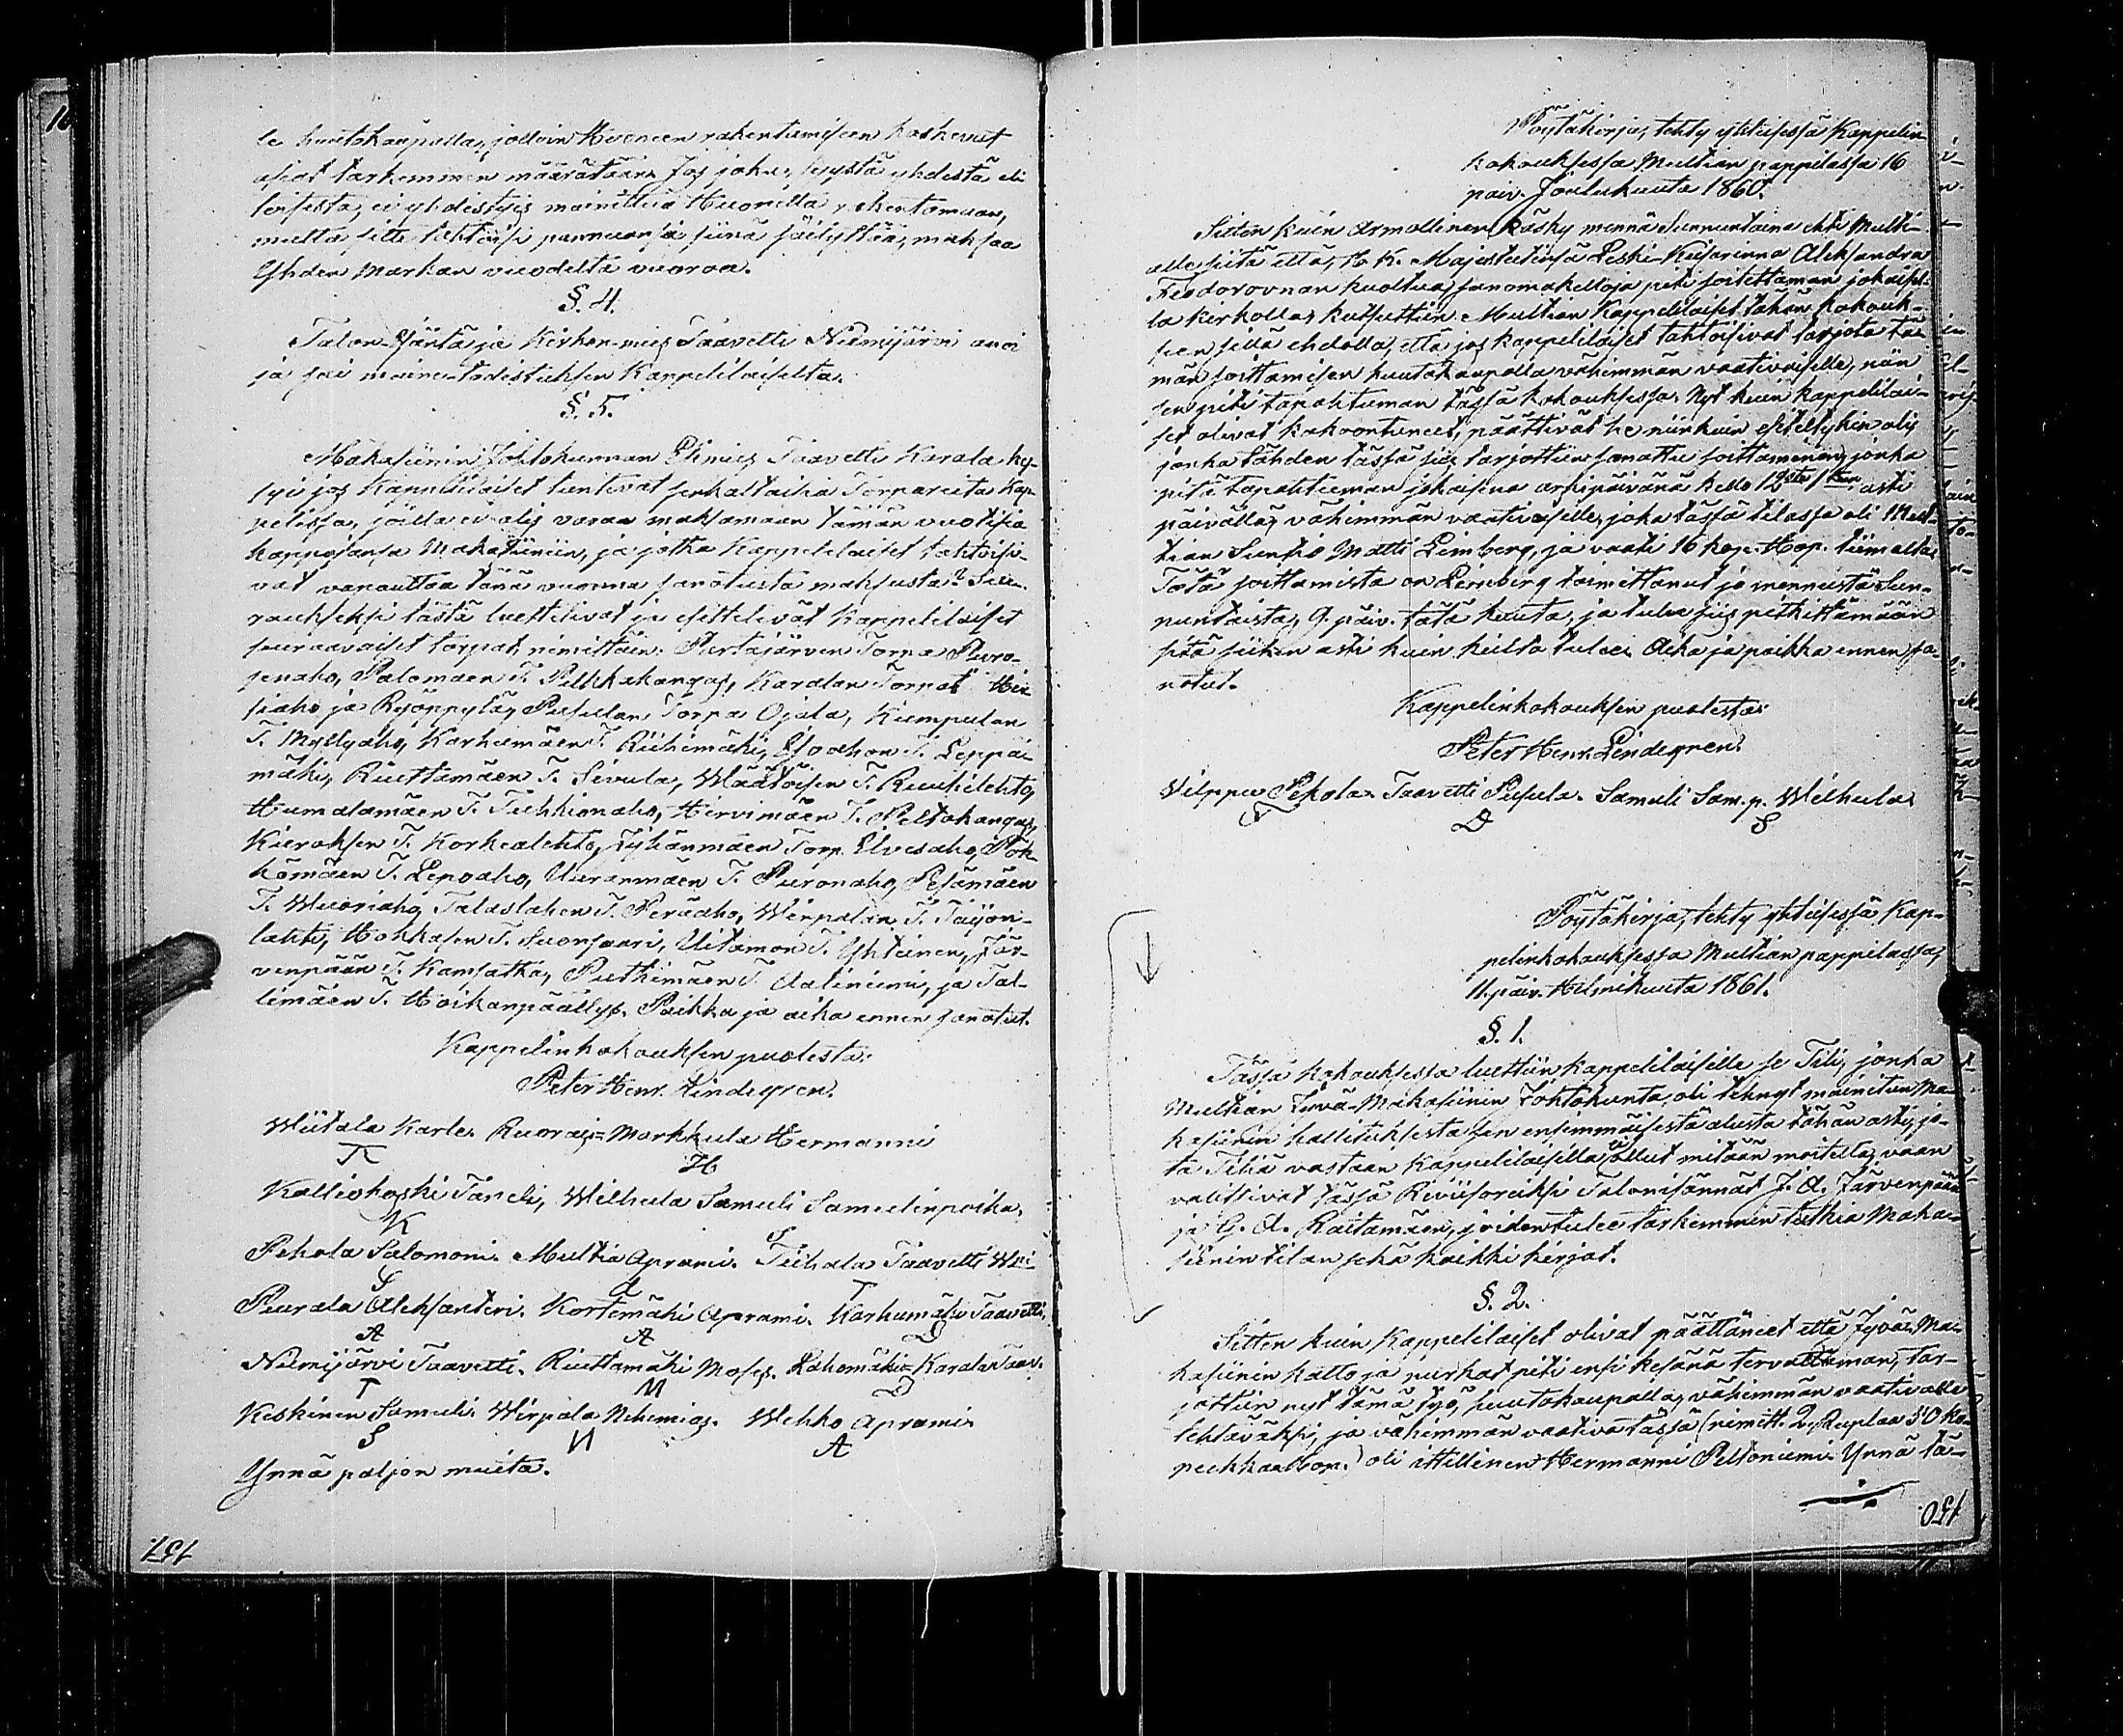 le huutokaupalla, jolloin Huoneen rakentamiseen koskevat
asiat tarkemmin määrätään. Jos joku, syystä yhdestä eli
toisesta, ei yhdistyis mainittua Huonetta rakentamaan,
mutta sitte tahtoisi pannaansa siinä säilyttää, maksaa
Yhden Markan vuodelta vuoroa.
§. 4.
Talon-Isäntä ja Kirkon-mies Taavetti Niemijärvi anoi
ja sai maine-todistuksen Kappelilaisilta.
§. 5.
Makasiinin Johtokunnan Esimies Taavetti Karala ky-
syi jos Kappelilaiset tuntevat senkaltaisia Torpareita Kap-
pelissa, joilla ei olis varaa maksamaan tämän vuotisia
kappojansa Makasiiniin, ja jotka Kappelilaiset tahtoisi-
vat vapauttaa tänä vuonna sanotusta maksusta? Seu-
rauksesi tästä luettelivat ja esittelivät Kappelilaiset
seuraavaiset torpat, nimittäin: Purtojärven Torpa Puro-
senaho, Palomäen T. Pelkkakangas, Karalan Torpat
siaho ja Ryöppylä, Pusulan Torpa Ojala, Kumpulan
T. Myllyaho, Karhumäen T. Riihimäki, Isoahon T. Leppä-
mäki, Riuttamäen T. Sivula, Wäätäisen T. Ruukilehto,
Humalamäen T. Tuhkionaho, Hirvimäen T. Peltokangas,
Kieroksen T. Korkealehto, Lylianmäen Torp. Elvesaho, Pöh-
kömäen T. Lepoaho, Uuranmäen T. Puronaho, Pesämäen
T. Wuoriaho, Talaslahen T. Peräaho, Wirpalan T. Taijon-
lahti, Hokkasen T. Suonsaari, Uitamon T. Yhteinen, Jär-
venpään T. Kamsatka, Putkimäen T. Aaliniemi, ja Tal-
limäen T. Hoikanpäällys. Paikka ja aika ennen sanotut.
Kappelinkokouksen puolesta:
Peter Henr. Lindegren.
Wiitala Karle. Ruoras-Markkula Hermanni
K H
Kallioskoski Taneli, Wilhula Samuli Samulinpoika.
K S
Pekola Salomoni. Multia Aprami. Tiihala Taavetti Wil-
S A T
Puurala Aleksanteri. Kortemäki Aprami. Karhumäki Taavetti.
A A D
Niemijärvi Taavetti. Riuttamäki Moses. Lahomäki-Karala Taav.
T M D
Keskinen Samuli. Wirpala Nehemias. Wehko Aprami.
S N A
Ynnä paljon muita.
157.
Pöytäkirja, tehty yhteisessä Kappelin
kokouksessa Multian pappilassa 16
päiv. Joulukuuta 1860.
Sitten kuin Armollinen Käsky mennä Sunnuntaina ehti Multi-
alle siitä että, H. K. Majesteetinsa Leski-Keisarinna Aleksandra
Feodorovnan kuoltua, sanomakelloja piti soitettaman jokaisel-
la kirkolla, kutsuttiin Multian Kappelilaiset tähän kokouk-
seen sillä ehdolla, että jos kappelilaiset tahtoisivat tarjota tä-
män soittamisen huutokaupalla vähimmän vaativaiselle, niin
sen piti tapahtuman tässä kokouksessa. Nyt kuin Kappelilai-
set olivat kokoontuneet, päättivät he niinkuin esiteltykin oli,
jonka tähden tässä siis tarjottiin sanottu soittaminen, jonka
pitä tapahtuman jokaisena arkipäivänä kello 12sta 1teen asti
päivällä, vähimmän vaativaiselle, joka tässä tilassa oli Mul-
tian Suntio Matti Leinberg, ja vaati 16 kop. Hop. tiimalta.
Tätä soittamista on Leinberg toimittanut jo mennestä Sun-
nuntaista, 9. päiv. tätä kuuta, ja tulee siis pitkittämään
sitä siihen asti kuin kielto tulee. Aika ja paikka ennen sa-
notut.
Kappelinkokouksen puolesta:
Peter Henr. Lindegren.
Wilppu Pekola. Taavetti Pusula. Samuli Sam. p. Wilhula.
D S
Pöytäkirja, tehty yhteisessä Kap-
pelinkokouksessa Multian pappilassa,
11. päiv. Helmikuuta 1861.
§. 1.
Tässä kokouksessa luettiin kappelilaisille se Tili, jonka
Multian Jyvä-Makasiinin Johtokunta oli tehnyt mainitun Ma-
kasiinin hallituksesta sen ensimmäisestä alusta tähän asti, jo-
ta Tiliä vastaan Kappelilaisilla ei ollut mitään moitetta, vaan
valitsivat tässä Reviisoreiksi Talonisännät J. A. Järvenpään
ja G. A. Raitamäen, joiden tulee tarkemmin tutkia Maka-
siinin tilan sekä kaikki kirjat.
§. 2.
Sitten kuin Kappelilaiset olivat päättäneet että Jyvä-Ma-
kasiinin katto ja nurkat piti ensi kesänä tervattaman, tar-
jottiin nyt tämä työ, huutokaupalla, vähimmän vaativalle
tehtäväksi, ja vähimmän vaativa tässä (nimitt. 2. Ruplaa 50 ko-
peekkaa hop.) oli itsellinen Hermanni Peltoniemi. Ynnä tä-
150.